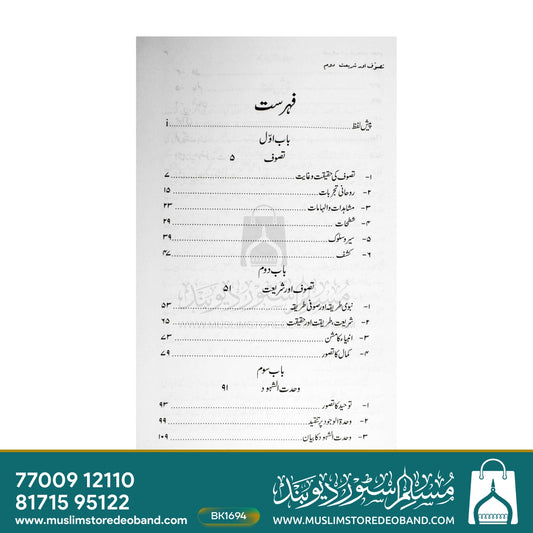 تصوّف اور شریعت دوم
فہرست
پیش لفظ i
باب اوّل
تصوف ۵
۱- تصوف کی حقیقت وغایت ۷
۲- روحانی تجربات ۱۵
۳- مشاہدات والہامات ۲۳
۴- شطحات ۲۹
۵- سیر وسلوک ۳۹
۶- کشف ۴۷
باب دوم
تصوف اور شریعت ۵۱
۱- نبوی طریقہ اور صوفی طریقہ ۵۳
۲- شریعت، طریقت اور حقیقت ۶۵
۳- انبیاء کا مشن ۷۳
۴- کمال کا تصور ۷۹
باب سوم
وحدت الشہود ۹۱
۱- توحید کا تصور ۹۳
۲- وحدۃ الوجود پر تنقید ۹۹
۳- وحدت الشہود کا بیان ۱۰۹
مسلم اسٹور دیوبند
77009 12110
81715 95122
www.muslimstoredeoband.com
BK1694
مسلم اسٹور دیوبند
WWW.MUSLIMSTOREDEOBAND.COM